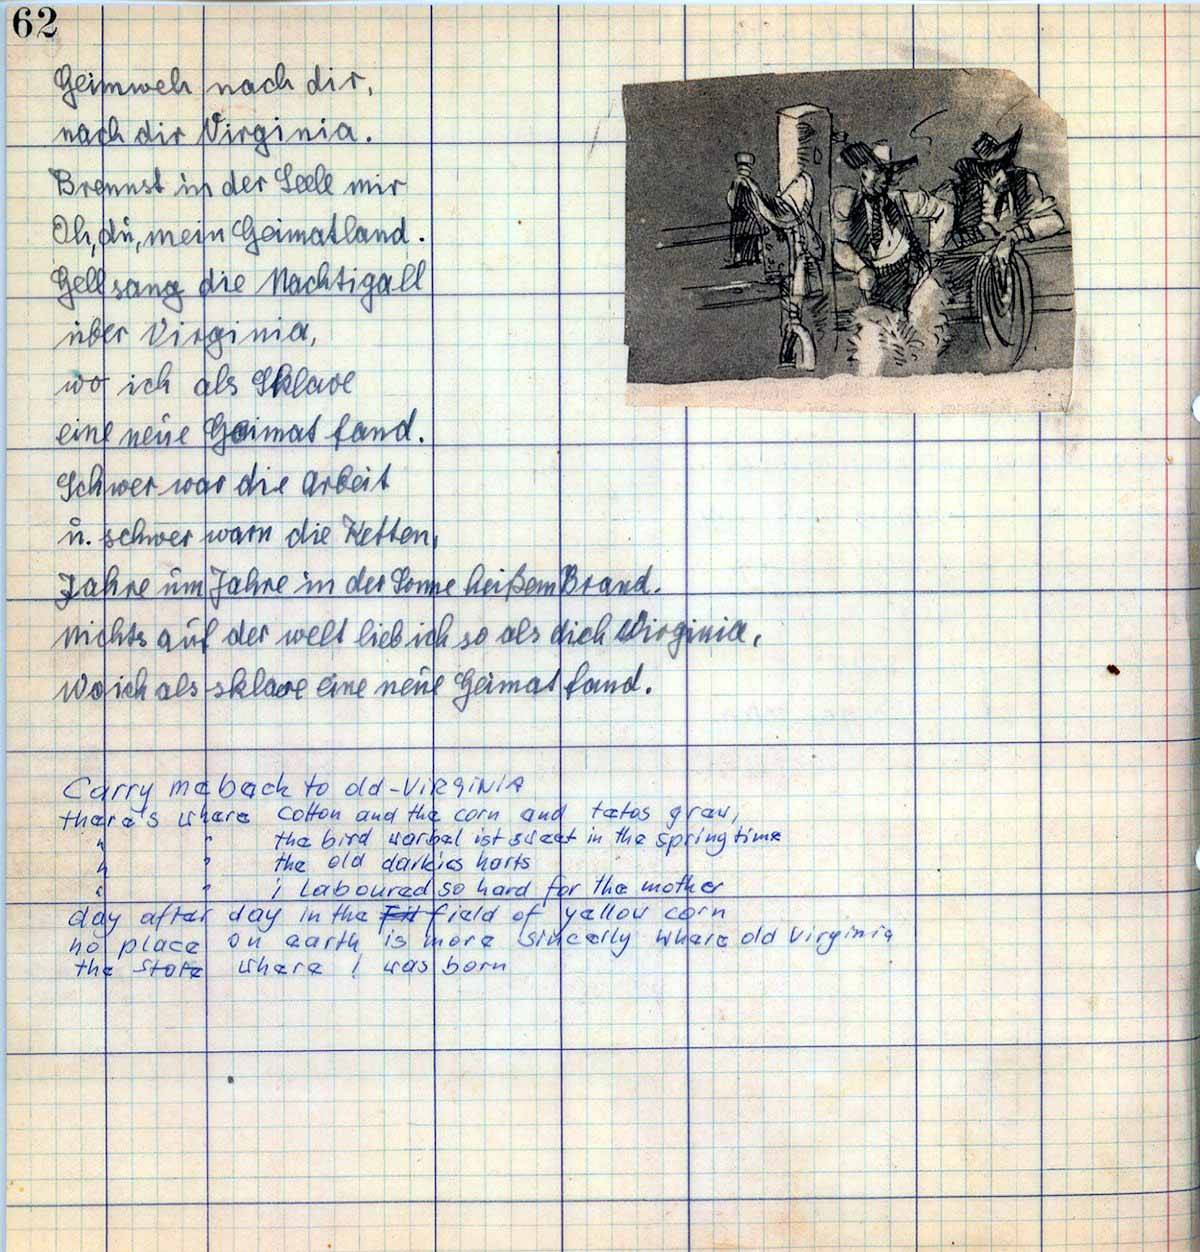 62
Heimweh nach dir,
nach dir Virginia.
Brennst in der Seele mir
Oh, du, mein Heimatland.
Hell sang die Nachtigall
über Virginia,
wo ich als Sklave
eine neue Heimat fand.
Schwer war die Arbeit
u. schwer warn die Ketten,
Jahre um Jahre in der Sonne heißem Brand.
Nichts auf der Welt lieb ich so als dich Virginia,
Wo ich als Sklave eine neue Heimat fand.
Carry me back to old-VIRGINIA
there's where cotton and the corn and tatos grow,
" " the bird warbel ist sweet in the springtime
" " the old darkies harts
" " i laboured so hard for the mother
day after day in the field of yellow corn
no place on earth is more sincerly where old Virginia
the state where i was born